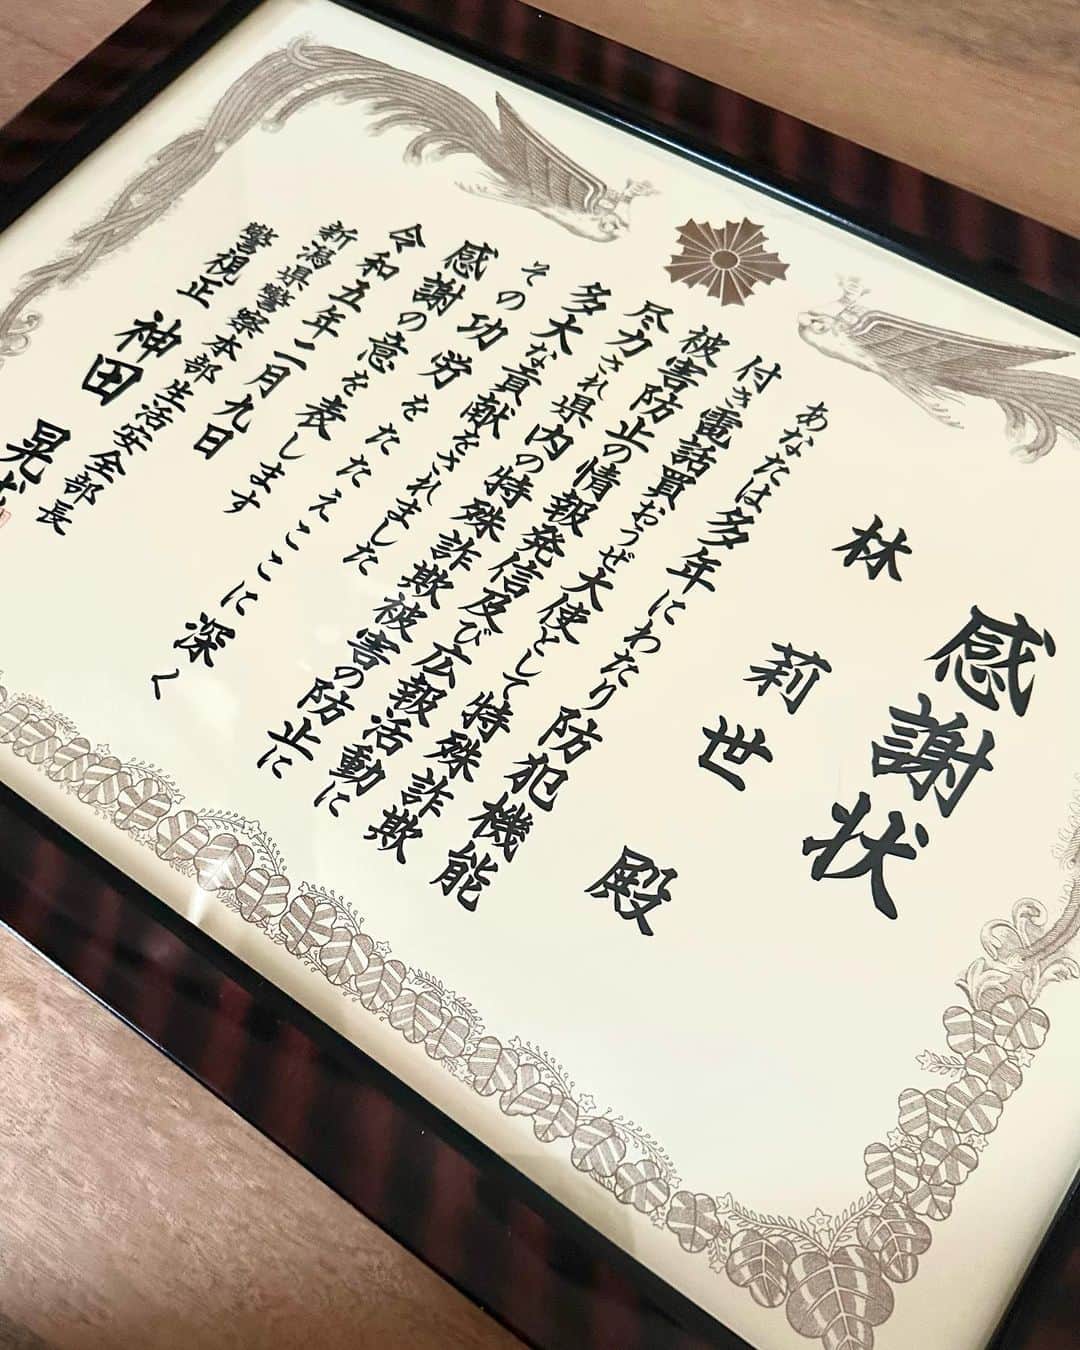 感謝状
林 莉世 殿
あなたは多年にわたり防犯機能
付き電話買おうぜ大使として特殊詐欺
被害防止の情報発信及び広報活動に
尽力され県内の特殊詐欺被害の防止に
多大な貢献をされました
その功労をたたえここに深く
感謝の意を表します
令和五年二月九日
新潟県警察本部生活安全部長
警視正 神田 晃